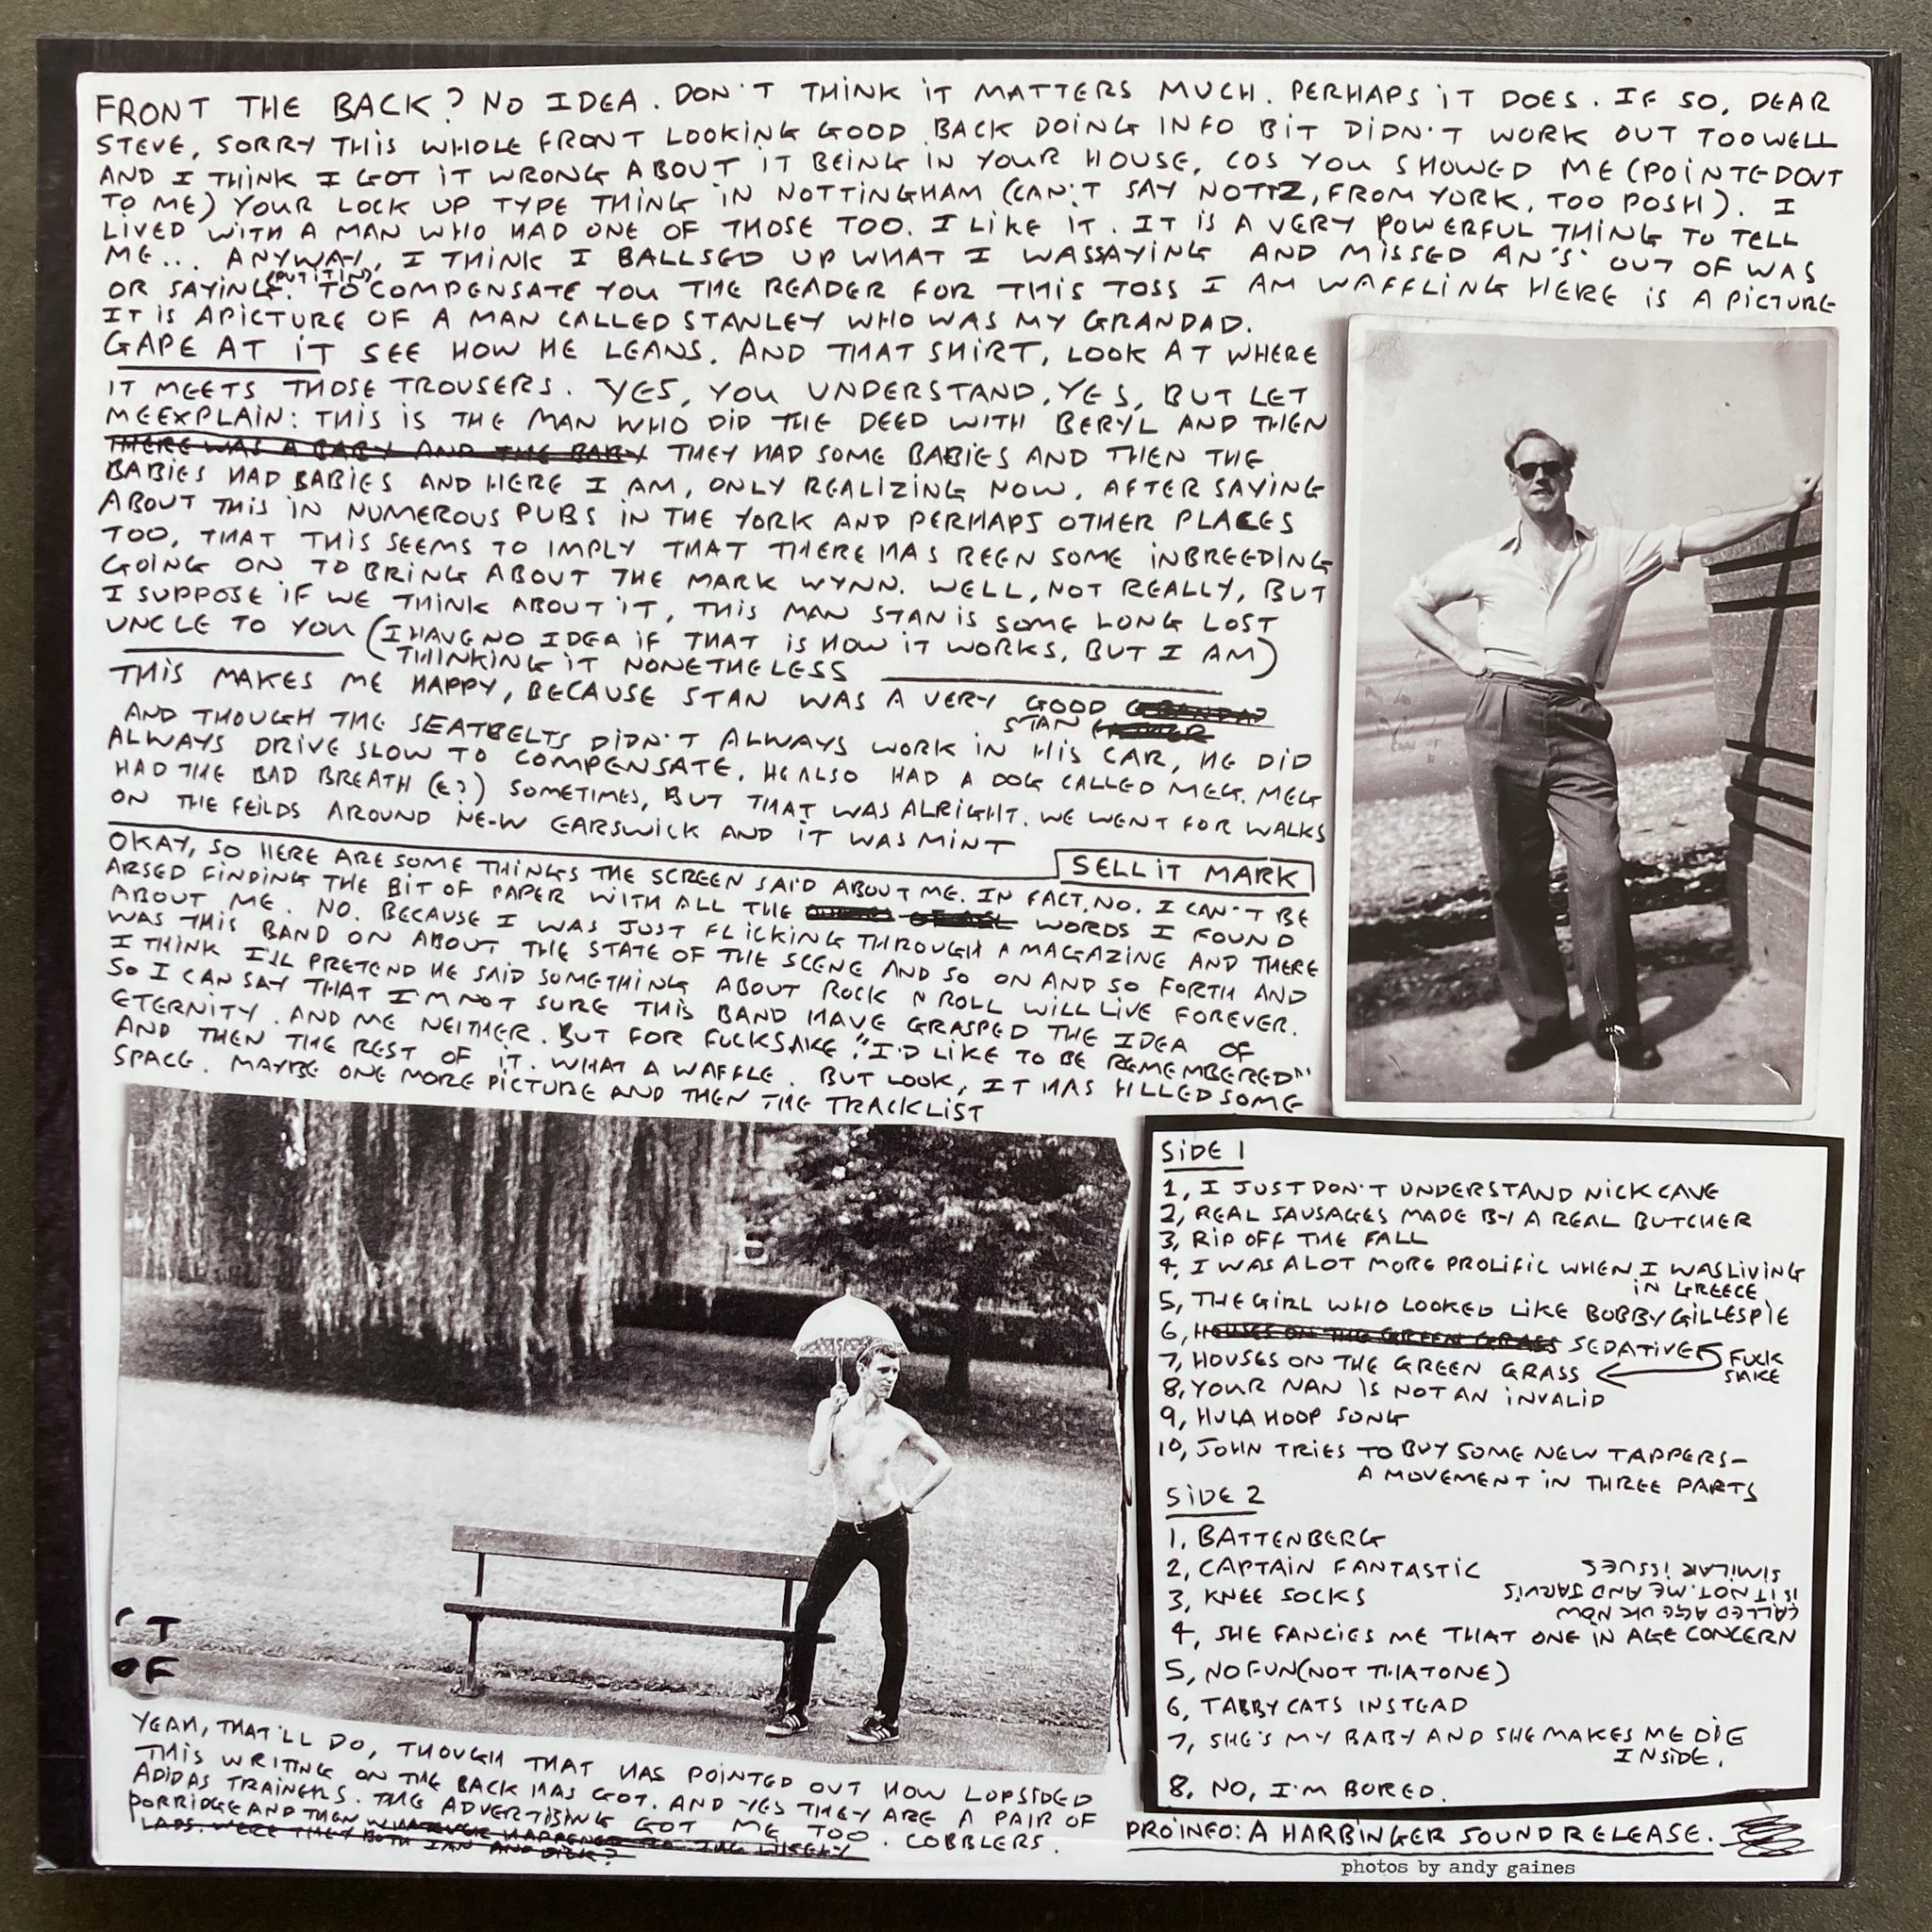 FRONT THE BACK? NO IDEA. DON'T THINK iT MATTERS MUCH. PERHAPS iT DOES. IF SO, DEAR
STEVE, SORRY THiS WHOLE FRONT LOOKING GOOD BACK DOING INFO BiT DiDN'T WORK OUT TOO WELL
AND I THiNK I GOT iT WRONG ABOUT iT BEiNG iN YOUR HOUSE, COS YOU SHOWED ME (POiNTED OUT
TO ME) YOUR LOCK UP TYPE THiNG iN NOTTiNGHAM (CAN'T SAY NOTTZ, FROM YORK, TOO POSH). I
LiVED WiTH A MAN WHO HAD ONE OF THOSE TOO. I LiKE iT. IT iS A VERY POWERFUL THiNG TO TELL
ME... ANYWAY, I THiNK I BALLSED UP WHAT I WASSAYiNG AND MiSSED AN 'S' OUT OF WAS
OR SAYiNG. (PUT iT iN) TO COMPENSATE YOU THE READER FOR THiS TOSS I AM WAFFLiNG HERE iS A PiCTURE
IT iS A PiCTURE OF A MAN CALLED STANLEY WHO WAS MY GRANDAD.
GAPE AT iT SEE HOW HE LEANS. AND THAT SHiRT, LOOK AT WHERE
iT MEETS THOSE TROUSERS. YES, YOU UNDERSTAND, YES, BUT LET
ME EXPLAiN: THiS iS THE MAN WHO DiD THE DEED WiTH BERYL AND THEN
THERE WAS A BABY AND THE BABY THEY HAD SOME BABiES AND THEN THE
BABiES HAD BABiES AND HERE I AM, ONLY REALiZiNG NOW, AFTER SAYiNG
ABOUT THiS iN NUMEROUS PUBS iN THE YORK AND PERHAPS OTHER PLACES
TOO, THAT THiS SEEMS TO IMPLY THAT THERE HAS BEEN SOME iNBREEDiNG
GOiNG ON TO BRiNG ABOUT THE MARK WYNN. WELL, NOT REALLY, BUT
I SUPPOSE iF WE THiNK ABOUT iT, THiS MAN STAN iS SOME LONG LOST
UNCLE TO YOU (I HAVE NO IDEA iF THAT iS HOW iT WORKS, BUT I AM)
THiNKiNG iT NONETHELESS
THiS MAKES ME HAPPY, BECAUSE STAN WAS A VERY GOOD GRANDAD
STAN
AND THOUGH THE SEATBELTS DiDN'T ALWAYS WORK iN HiS CAR, HE DiD
ALWAYS DRiVE SLOW TO COMPENSATE. HE ALSO HAD A DOG CALLED MEG. MEG
HAD THE BAD BREATH (E?) SOMETiMES, BUT THAT WAS ALRiGHT. WE WENT FOR WALKS
ON THE FEiLDS AROUND NEW EARSWiCK AND iT WAS MiNT
SELL iT MARK
OKAY, SO HERE ARE SOME THiNGS THE SCREEN SAiD ABOUT ME. IN FACT, NO. I CAN'T BE
ARSED FiNDiNG THE BiT OF PAPER WiTH ALL THE WORDS I FOUND
ABOUT ME. NO. BECAUSE I WAS JUST FLiCKiNG THROUGH A MAGAZiNE AND THERE
WAS THiS BAND ON ABOUT THE STATE OF THE SCENE AND SO ON AND SO FORTH AND
I THiNK I'LL PRETEND HE SAiD SOMETHiNG ABOUT ROCK N ROLL WiLL LiVE FOREVER.
SO I CAN SAY THAT I'M NOT SURE THiS BAND HAVE GRASPED THE IDEA OF
ETERNiTY. AND ME NEiTHER. BUT FOR FUCKSAKE "I'D LiKE TO BE REMEMBERED"
AND THEN THE REST OF iT. WHAT A WAFFLE. BUT LOOK, IT HAS FiLLED SOME
SPACE. MAYBE ONE MORE PiCTURE AND THEN THE TRACKLiST
'T
OF
YEAH, THAT'LL DO, THOUGH THAT HAS POiNTED OUT HOW LOPSiDED
THiS WRiTiNG ON THE BACK HAS GOT. AND YES THEY ARE A PAiR OF
ADiDAS TRAiNERS. THE ADVERTiSiNG GOT ME TOO. COBBLERS.
PORRiDGE AND THEN WHATEVER HAPPENED TO THE LiKELY
LADS. WERE THEY BOTH IAN AND DiCK?
SiDE 1
1, I JUST DON'T UNDERSTAND NiCK CAVE
2, REAL SAUSAGES MADE BY A REAL BUTCHER
3, RiP OFF THE FALL
4, I WAS A LOT MORE PROLiFiC WHEN I WAS LiViNG
iN GREECE
5, THE GiRL WHO LOOKED LiKE BOBBY GiLLESPiE
6, HOUSES ON THE GREEN GRASS SEDATiVE
7, HOUSES ON THE GREEN GRASS
FUCK
SAKE
8, YOUR NAN iS NOT AN iNVALiD
9, HULA HOOP SONG
10, JOHN TRiES TO BUY SOME NEW TAPPERS-
A MOVEMENT iN THREE PARTS
SiDE 2
1, BATTENBERG
2, CAPTAiN FANTASTiC
3, KNEE SOCKS
4, SHE FANCiES ME THAT ONE iN AGE CONCERN
CALLED AGE UK NOW
iS iT NOT. ME AND JARViS
SiMiLAR iSSUES
5, NO FUN (NOT THAT ONE)
6, TABBY CATS INSTEAD
7, SHE'S MY BABY AND SHE MAKES ME DiE
INSiDE.
8, NO, I'M BORED.
PRO iNFO: A HARBiNGER SOUND RELEASE.
photos by andy gaines